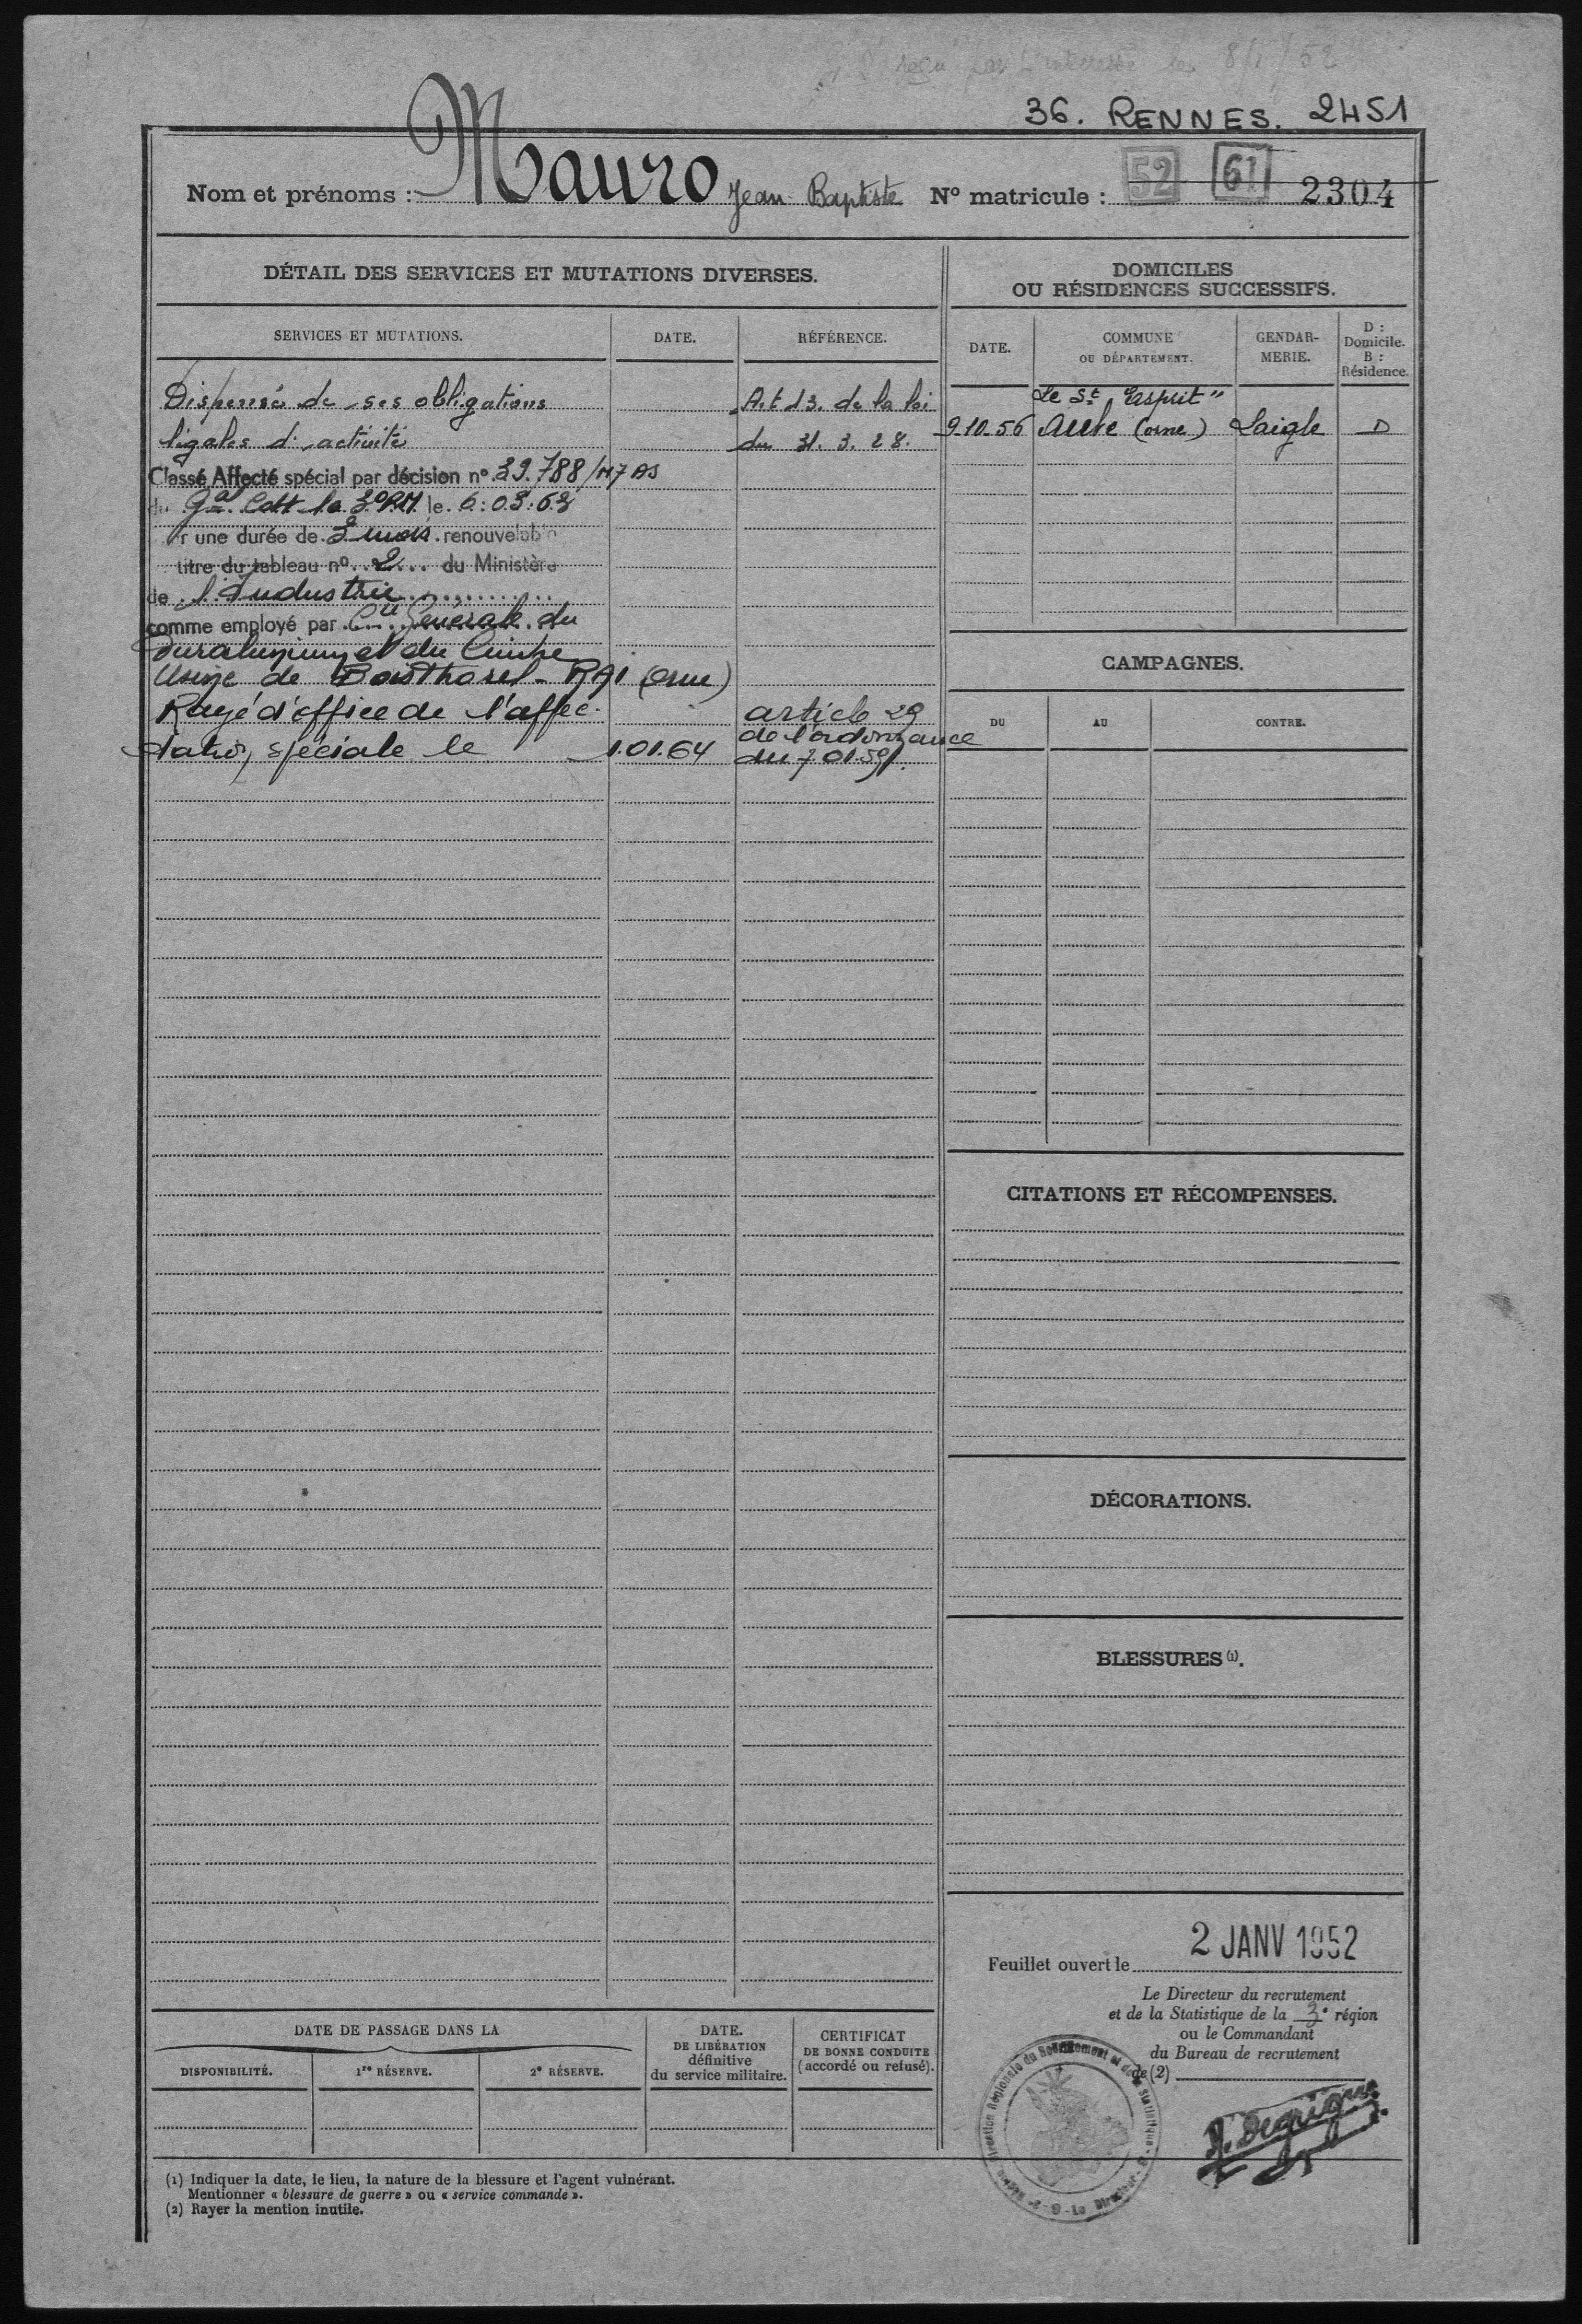 reçu par l'intéressé le 8/1/52
36. RENNES. 2451
Nom et prénoms : Mauro Jean-Baptiste N° matricule : 52 61 2304
DÉTAIL DES SERVICES ET MUTATIONS DIVERSES.
SERVICES ET MUTATIONS. DATE. RÉFÉRENCE.
Dispensé de ses obligations Art 13. de la loi
légales d'activité du 31. 3. 28.
Classé Affecté spécial par décision n° 39.788/M7 AS
du Gal Cdt la 3° RM le 6.03.63
r une durée de 2 mois renouvelable
titre du tableau n° 2 du Ministère
de l'Industrie
comme employé par Cie Générale du
Duralumin et du Cuivre
Usine de Boisthorel - RAI (Orne)
Rayé d'office de l'affec- article 29
tation spéciale le 1.01.64 de l'ordonnance
du 7.01.59.
DOMICILES
OU RÉSIDENCES SUCCESSIFS.
DATE. COMMUNE
OU DÉPARTEMENT. GENDAR-
MERIE. D :
Domicile.
B :
Résidence.
Le St Esprit"
9-10-56 Aube (orne) Laigle D
CAMPAGNES.
DU AU CONTRE.
CITATIONS ET RÉCOMPENSES.
DÉCORATIONS.
BLESSURES (1).
Feuillet ouvert le 2 JANV 1952
Le Directeur du recrutement
et de la Statistique de la 3e région
ou le Commandant
du Bureau de recrutement
de (2)
Direction Régionale du Recrutement et de la Statistique - Le Directeur
DATE DE PASSAGE DANS LA
DISPONIBILITÉ. 1re RÉSERVE. 2e RÉSERVE.
DATE.
DE LIBÉRATION
définitive
du service militaire.
CERTIFICAT
DE BONNE CONDUITE
(accordé ou refusé).
(1) Indiquer la date, le lieu, la nature de la blessure et l'agent vulnérant.
Mentionner « blessure de guerre » ou « service commandé ».
(2) Rayer la mention inutile.